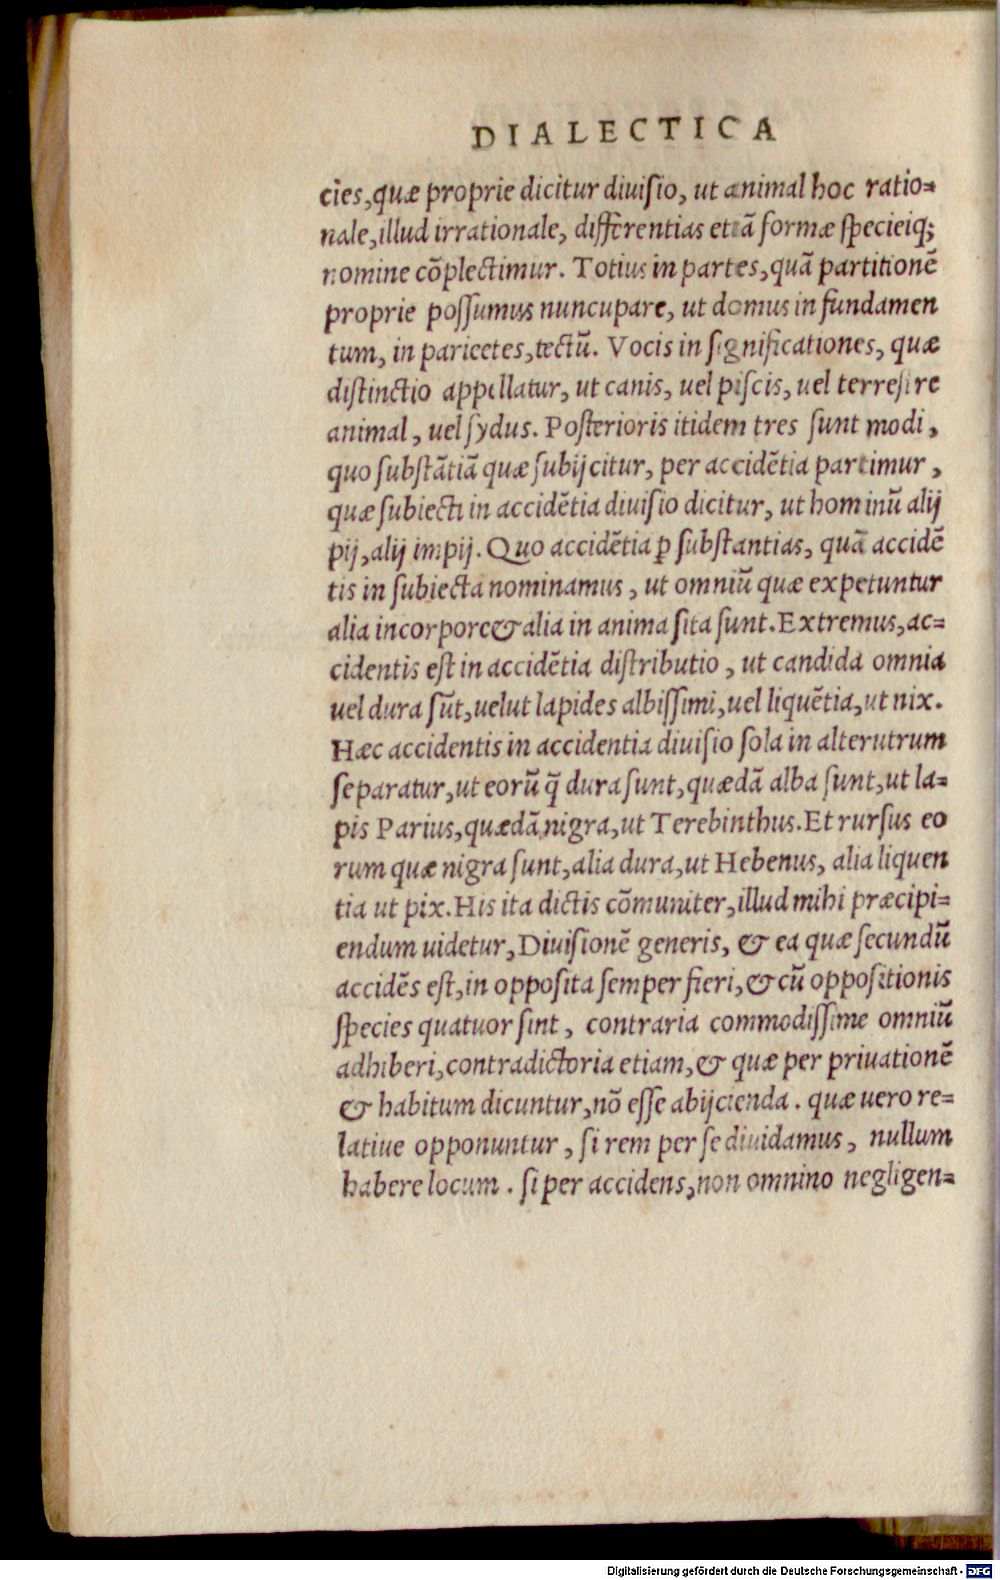 DIALECTICA
cies,quæ proprie dicitur diuisio, ut animal hoc ratio=
nale,illud irrationale, differentias etiã formæ specieiq;
nomine cõplectimur. Totius in partes,quã partitionẽ
proprie possumus nuncupare, ut domus in fundamen
tum, in parieetes,tectũ. Vocis in significationes, quæ
distinctio appellatur, ut canis, uel piscis, uel terrestre
animal, uel sydus. Posterioris itidem tres sunt modi,
quo substãtiã quæ subijcitur, per accidẽtia partimur,
quæ subiecti in accidẽtia diuisio dicitur, ut hominũ alij
pij,alij impij. Quo accidẽtia ꝑ substantias, quã accidẽ
tis in subiecta nominamus, ut omniũ quæ expetuntur
alia incorpore & alia in anima sita sunt. Extremus,ac=
cidentis est in accidẽtia distributio, ut candida omnia
uel dura sũt,uelut lapides albissimi,uel liquẽtia,ut nix.
Hæc accidentis in accidentia diuisio sola in alterutrum
separatur,ut eorũ q̃ dura sunt,quædã alba sunt,ut la=
pis Parius,quædã nigra,ut Terebinthus. Et rursus eo
rum quæ nigra sunt,alia dura,ut Hebenus, alia liquen
tia ut pix. His ita dictis cõmuniter,illud mihi præcipi=
endum uidetur, Diuisionẽ generis, & ea quæ secundũ
accidẽs est,in opposita semper fieri,& cũ oppositionis
species quatuor sint, contraria commodissime omniũ
adhiberi,contradictoria etiam,& quæ per priuationẽ
& habitum dicuntur,nõ esse abijcienda. quæ uero re=
latiue opponuntur, si rem per se diuidamus, nullum
habere locum. si per accidens,non omnino negligen=
Digitalisierung gefördert durch die Deutsche Forschungsgemeinschaft - DFG